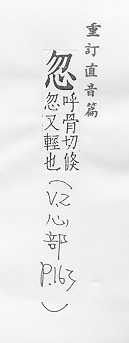 重訂直音篇
忽
呼骨切倐
忽又輕也
(V.2心部
P.163)